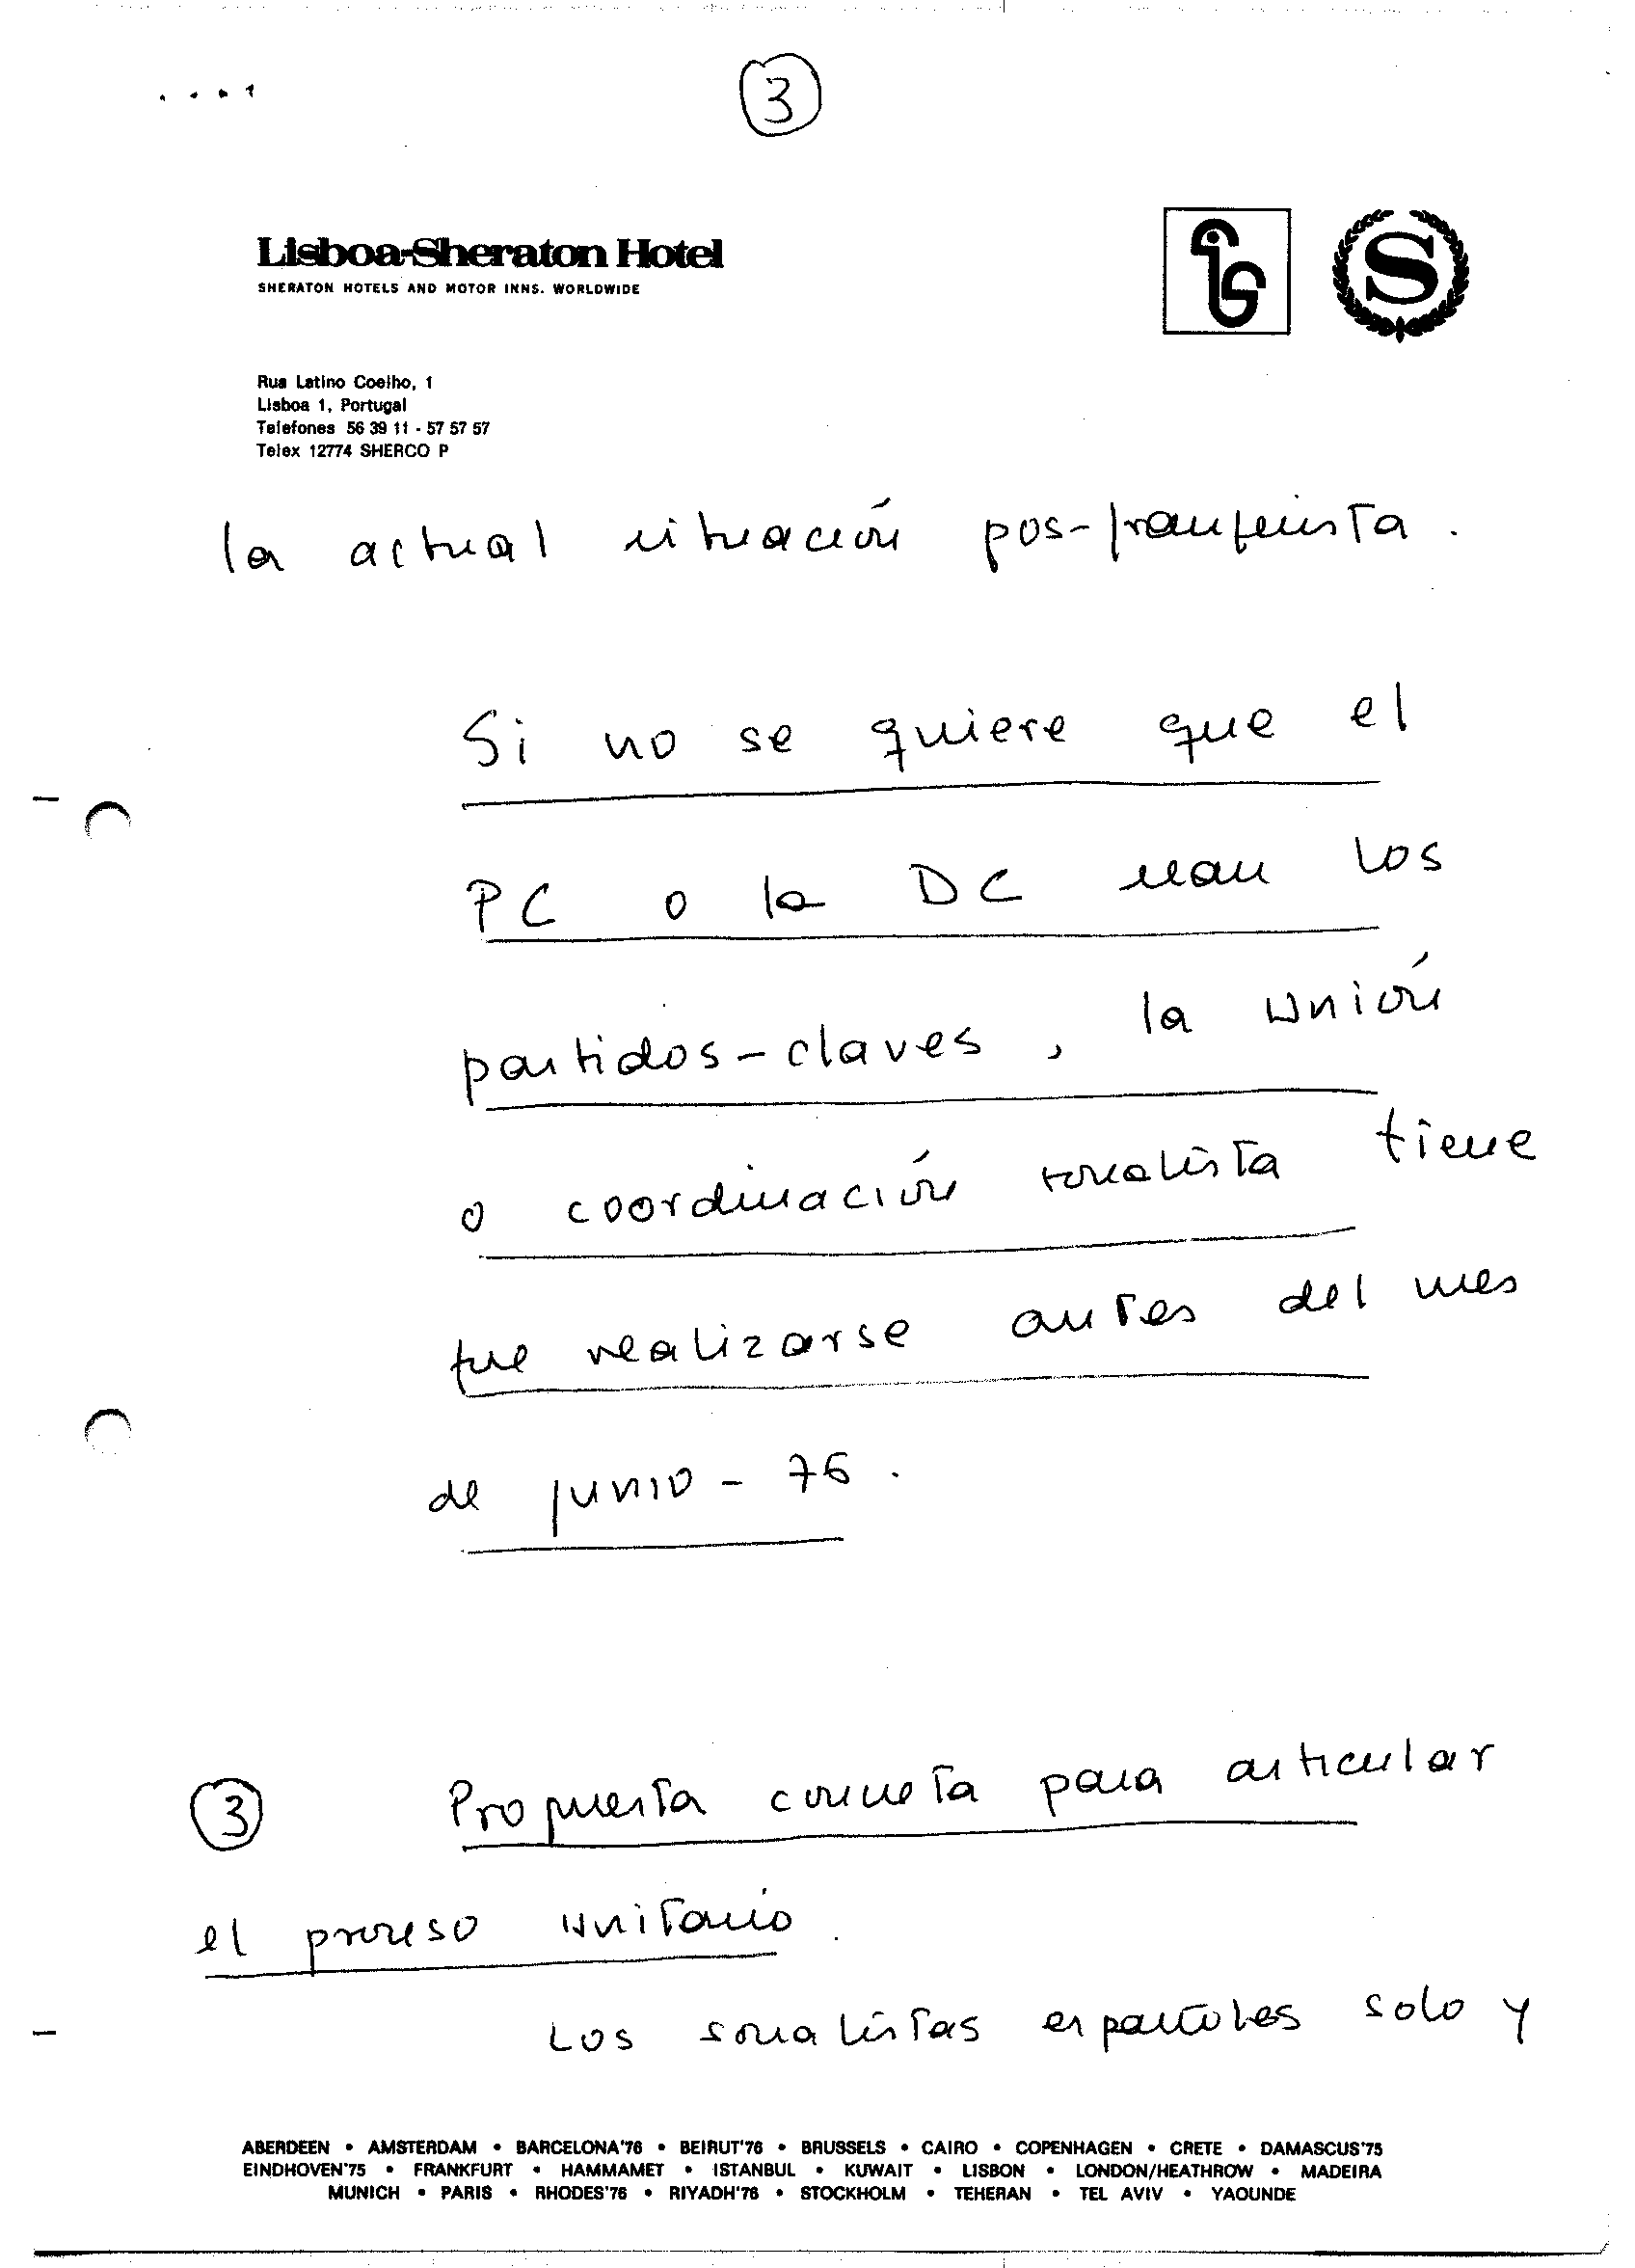 3
Lisboa-Sheraton Hotel
SHERATON HOTELS AND MOTOR INNS. WORLDWIDE
S
Rua Latino Coelho, 1
Lisboa 1, Portugal
Telefones 56 39 11 - 57 57 57
Telex 12774 SHERCO P
la actual situación pos-franquista.
Si no se quiere que el
PC o la DC sean los
partidos-claves, la unión
o coordinación socialista tiene
que realizarse antes del mes
de junio-76.
3 Propuesta concreta para articular
el proceso unitario.
Los socialistas españoles solo y
ABERDEEN • AMSTERDAM • BARCELONA'76 • BEIRUT'76 • BRUSSELS • CAIRO • COPENHAGEN • CRETE • DAMASCUS'75
EINDHOVEN'75 • FRANKFURT • HAMMAMET • ISTANBUL • KUWAIT • LISBON • LONDON/HEATHROW • MADEIRA
MUNICH • PARIS • RHODES'76 • RIYADH'76 • STOCKHOLM • TEHERAN • TEL AVIV • YAOUNDE